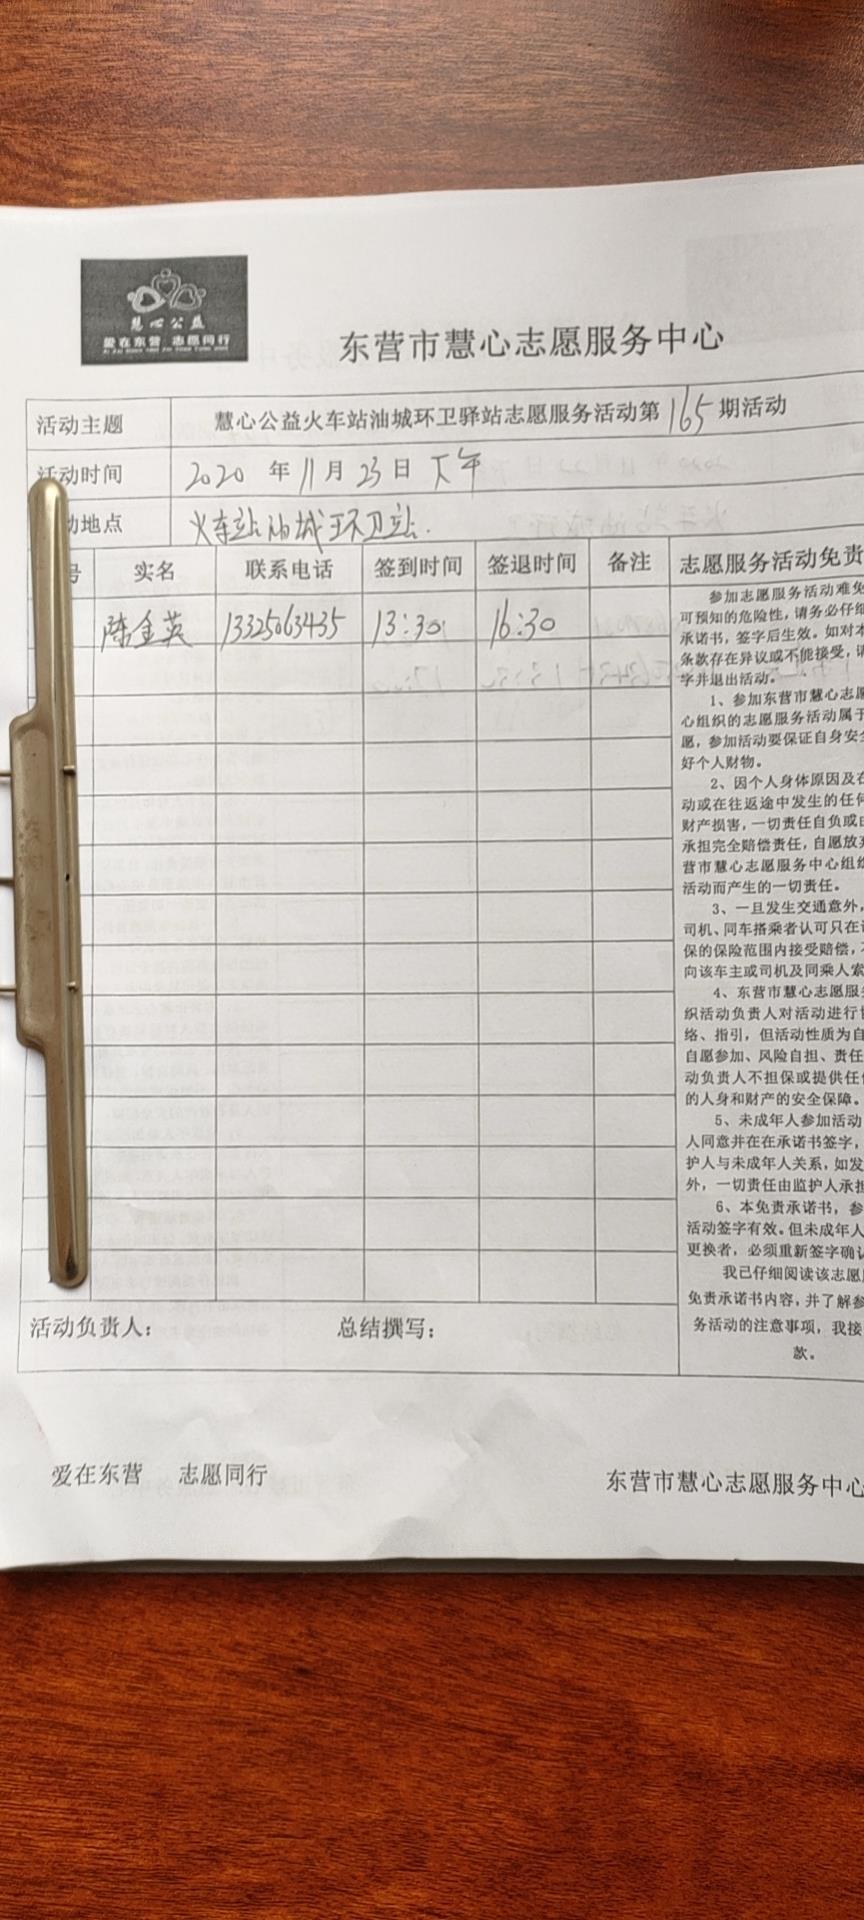 慧心公益
爱在东营 志愿同行
东营市慧心志愿服务中心
活动主题 慧心公益火车站油城环卫驿站志愿服务活动第165期活动
活动时间 2020年11月23日 下午
动地点 火车站油城环卫站.
号 实名 联系电话 签到时间 签退时间 备注 志愿服务活动免责
陈金英 13325063435 13:30 16:30
参加志愿服务活动难免
可预知的危险性,请务必仔细
承诺书,签字后生效。如对本
条款存在异议或不能接受,请
字并退出活动。
1、参加东营市慧心志愿
心组织的志愿服务活动属于
愿,参加活动要保证自身安全
好个人财物。
2、因个人身体原因及在
动或在往返途中发生的任何
财产损害,一切责任自负或由
承担完全赔偿责任,自愿放弃
营市慧心志愿服务中心组织
活动而产生的一切责任。
3、一旦发生交通意外,
司机、同车搭乘者认可只在
保的保险范围内接受赔偿,
向该车主或司机及同乘人索
4、东营市慧心志愿服务
织活动负责人对活动进行
络、指引,但活动性质为自
自愿参加、风险自担、责任
动负责人不担保或提供任何
的人身和财产的安全保障。
5、未成年人参加活动
人同意并在在承诺书签字,
护人与未成年人关系,如发
外,一切责任由监护人承担
6、本免责承诺书,参
活动签字有效。但未成年人
更换者,必须重新签字确认
我已仔细阅读该志愿
免责承诺书内容,并了解参
务活动的注意事项,我接
款。
活动负责人: 总结撰写:
爱在东营 志愿同行 东营市慧心志愿服务中心